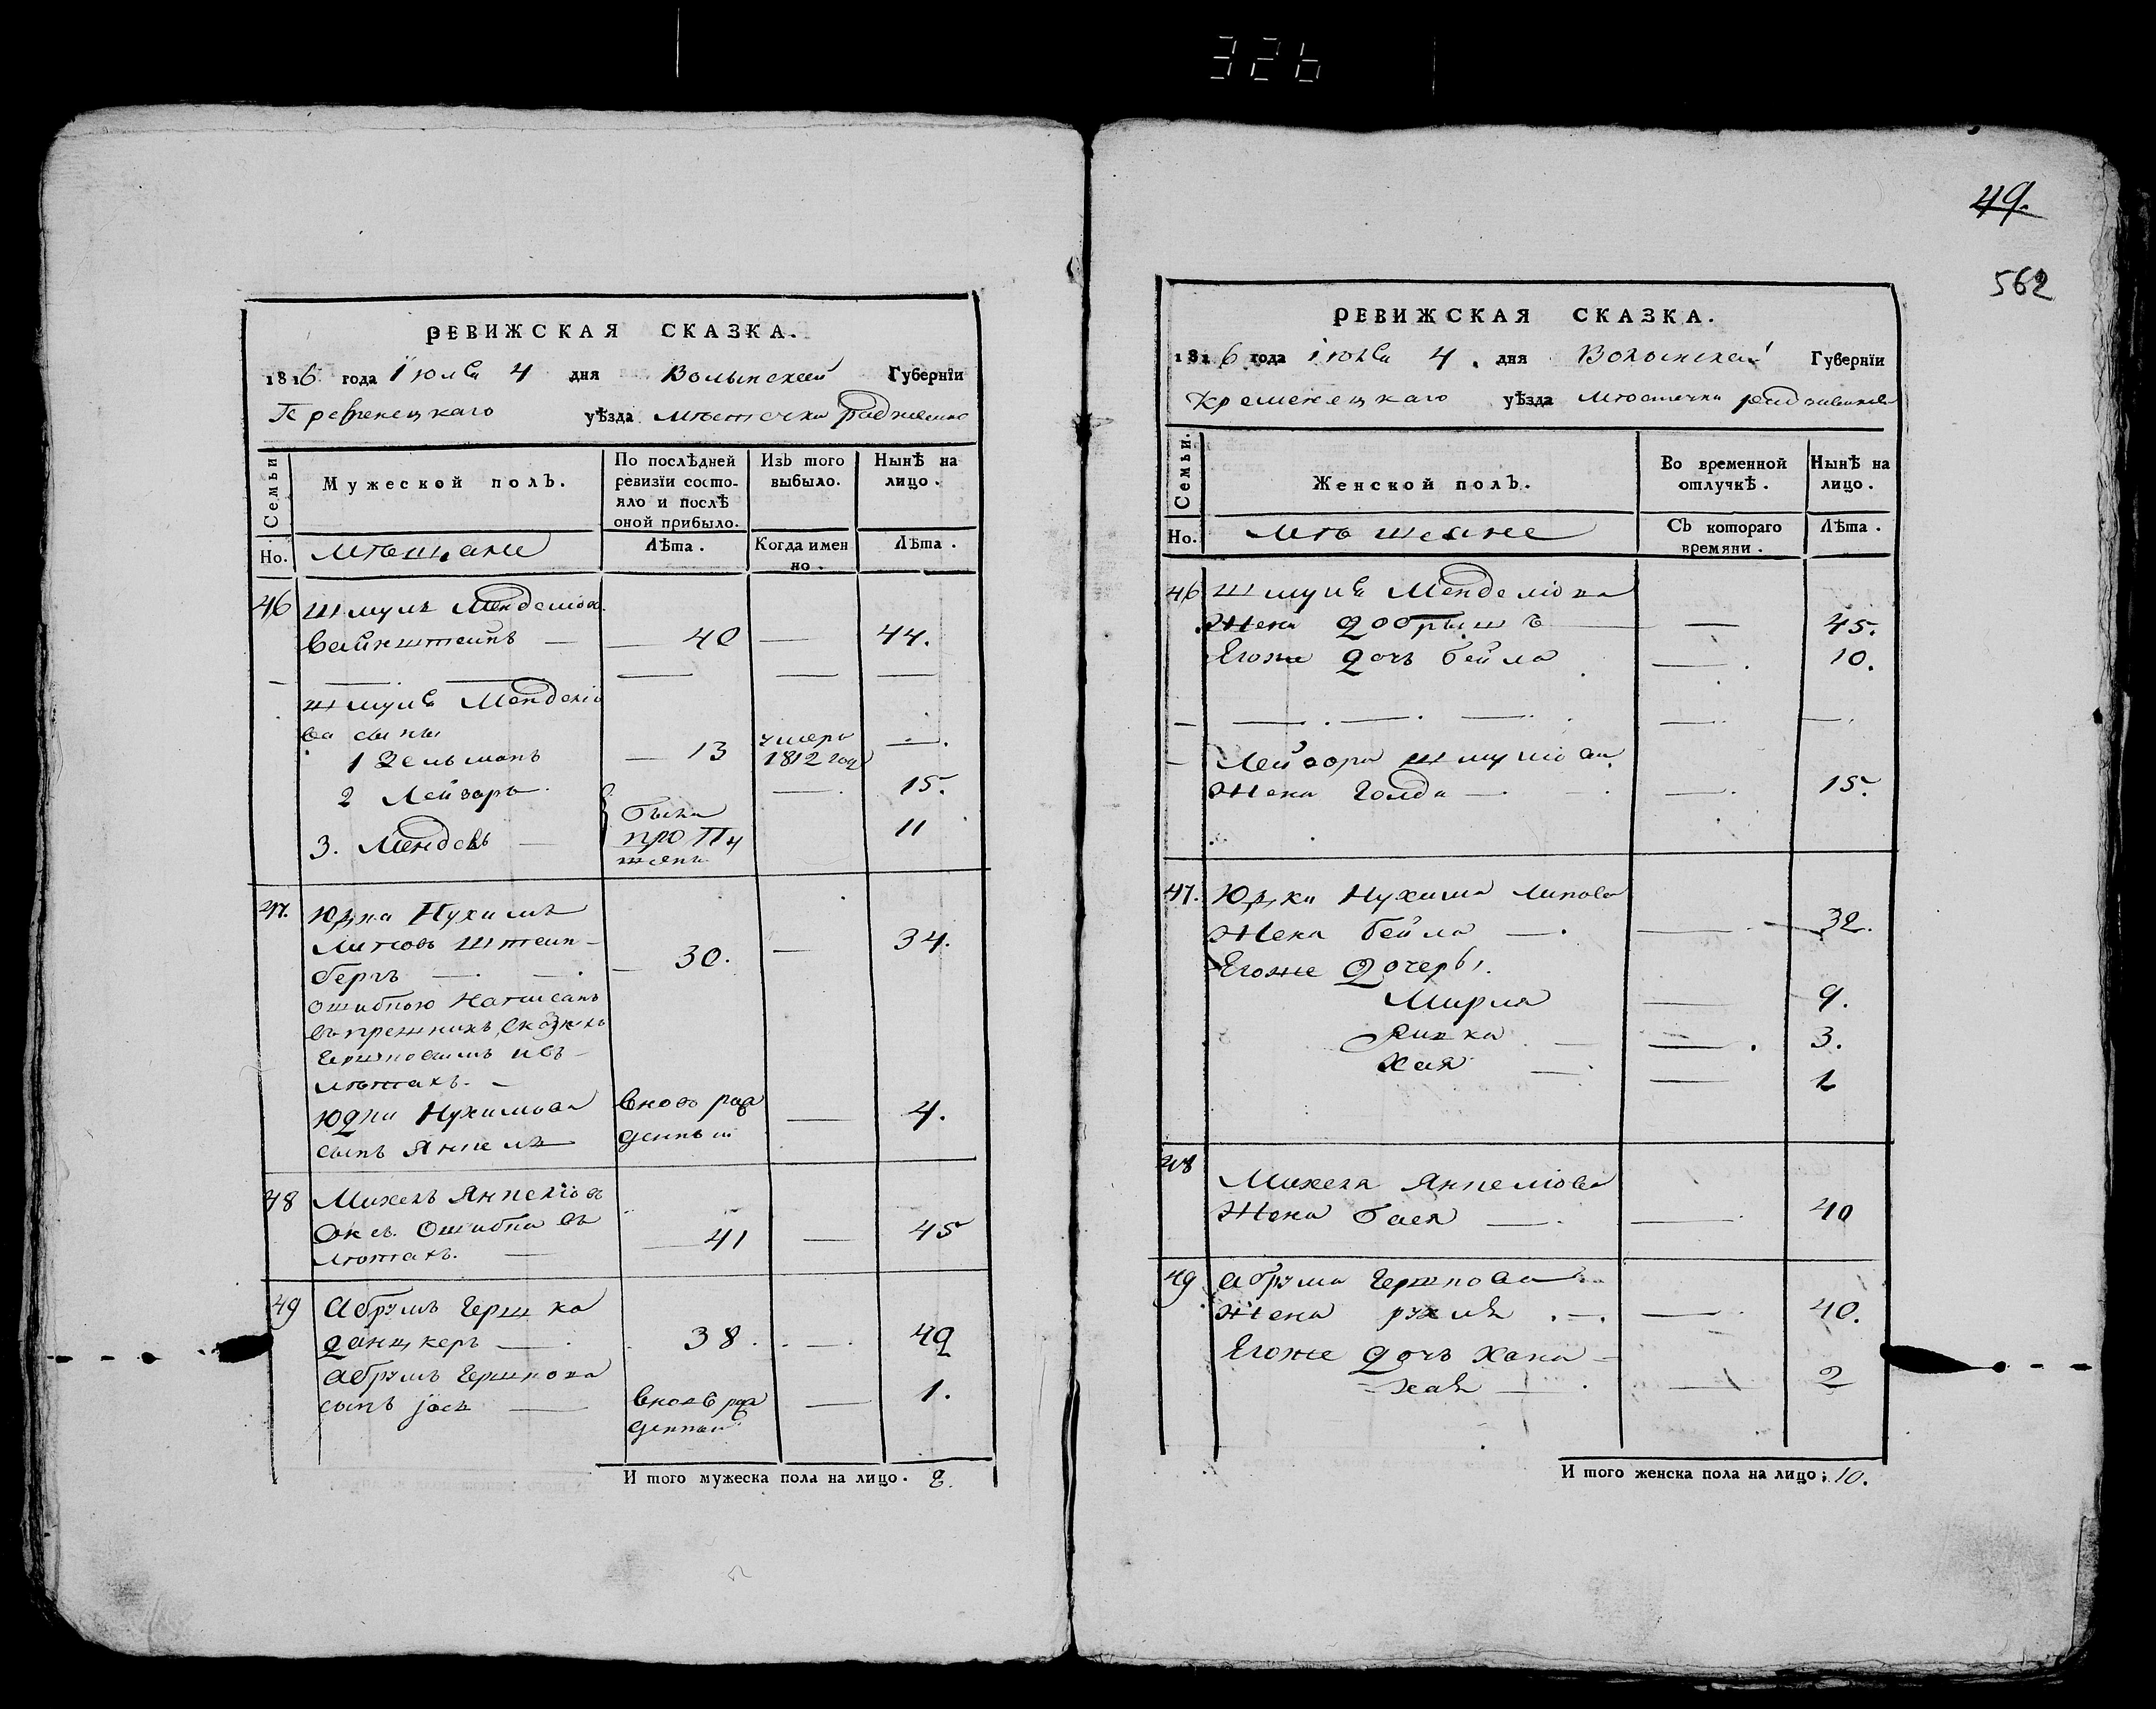 326
49.
562
РЕВИЖСКАЯ СКАЗКА.
1816 года Iюля 4 дня Волынской Губернїи
Кременецкаго уѣзда мѣстечка
Семьи
Мужеской полъ.
По послѣдней ревизїи состо-
яло и послѣ
оной прибыло.
Изъ того
выбыло.
Нынѣ на
лицо.
Но. мѣщане
Лѣта.
Когда имен
но.
Лѣта.
46 Шмуль Менделіов
Вайнштейнъ — 40 — 44.
Шмуля Менделіо
ва сыны
1 Зельманъ — 13 умеръ 1812 года —.
2 Лейзоръ — 15.
3. Мендель — 11
была
про
47. Юдка Нухимъ
Липовъ Штейн-
бергъ — 30. — 34.
ошибкою написанъ
въ прежнихъ сказкахъ
Гершковымъ и въ
лѣтахъ. —
Юдки Нухимова
сынъ Янкель вновь рож
денный — 4.
48 Михель Янкеліов
Ошибка въ
лѣтахъ. — 41 — 45
49 Абрумъ Гершка
Данцкеръ — 38. — 42
Абрумъ Гершкова
сынъ Іось — вновь рож
денный — 1.
И того мужеска пола на лицо. 8.
РЕВИЖСКАЯ СКАЗКА.
1816 года iюля 4. дня Волынской Губернїи
Кременецкаго уѣзда мѣстечка
Семьи.
Женской полъ.
Во временной
отлучкѣ.
Нынѣ на
лицо.
Но. мѣщане
Съ котораго
времяни.
Лѣта.
46 Шмуля Менделіова
Жена Добрышъ — 45.
Егоже дочь Бейла — 10.
Лейзора Шмуліова
Жена Голда — 15.
47. Юдки Нухима Липова
Жена Бейла — 32.
Егоже дочеры.
Мирля — 9.
Ривка — 3.
Хая — 1
48
Михеля Янкеліова
Жена Бася — 40
49 Абрума Гершкова
Жена Рухля — 40.
Егоже дочь Хана-
Хая — 2
И того женска пола на лицо; 10.